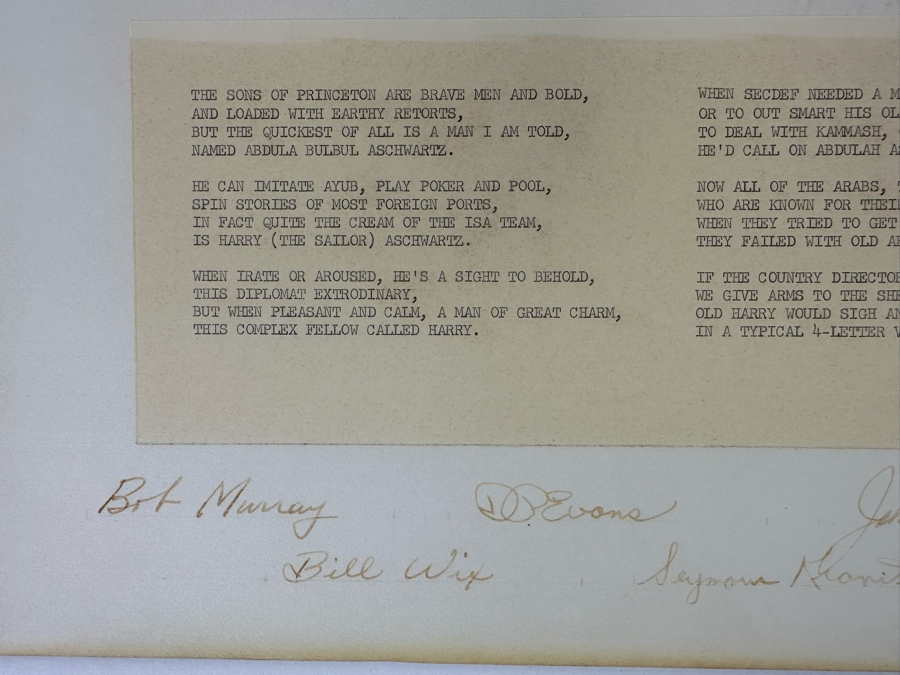 THE SONS OF PRINCETON ARE BRAVE MEN AND BOLD,
AND LOADED WITH EARTHY RETORTS,
BUT THE QUICKEST OF ALL IS A MAN I AM TOLD,
NAMED ABDULA BULBUL ASCHWARTZ.
HE CAN IMITATE AYUB, PLAY POKER AND POOL,
SPIN STORIES OF MOST FOREIGN PORTS,
IN FACT QUITE THE CREAM OF THE ISA TEAM,
IS HARRY (THE SAILOR) ASCHWARTZ.
WHEN IRATE OR AROUSED, HE'S A SIGHT TO BEHOLD,
THIS DIPLOMAT EXTRODINARY,
BUT WHEN PLEASANT AND CALM, A MAN OF GREAT CHARM,
THIS COMPLEX FELLOW CALLED HARRY.
WHEN SECDEF NEEDED A
OR TO OUT SMART HIS
TO DEAL WITH KAMMASH,
HE'D CALL ON ABDULAH
NOW ALL OF THE ARABS,
WHO ARE KNOWN FOR
WHEN THEY TRIED TO GET
THEY FAILED WITH OLD
IF THE COUNTRY
WE GIVE ARMS TO THE
OLD HARRY WOULD SIGH
IN A TYPICAL 4-LETTER
Bob Murray
DPEvans
Bill Wix
Seymour